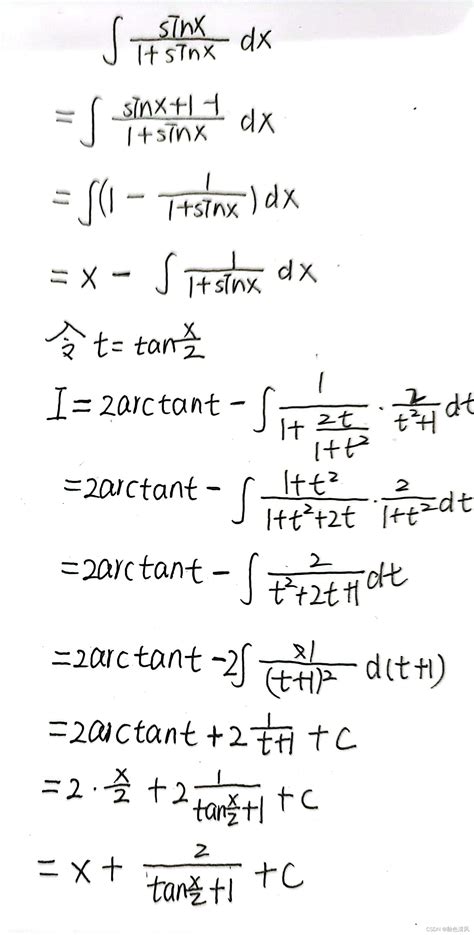 ∫ sinx/(1+sinx) dx
= ∫ (sinx+1-1)/(1+sinx) dx
= ∫(1 - 1/(1+sinx)) dx
= x - ∫ 1/(1+sinx) dx
令 t = tan x/2
I = 2arctant - ∫ 1/(1 + 2t/(1+t²)) · 2/(t²+1) dt
= 2arctant - ∫ (1+t²)/(1+t²+2t) · 2/(1+t²) dt
= 2arctant - ∫ 2/(t²+2t+1) dt
= 2arctant - 2∫ 1/(t+1)² d(t+1)
= 2arctant + 2 1/(t+1) + C
= 2 · x/2 + 2 1/(tan x/2 + 1) + C
= x + 2/(tan x/2 + 1) + C